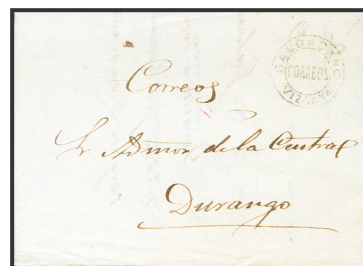 CORREOS
VIZCAYA
Correos
Sr Admor de la Central
Durango